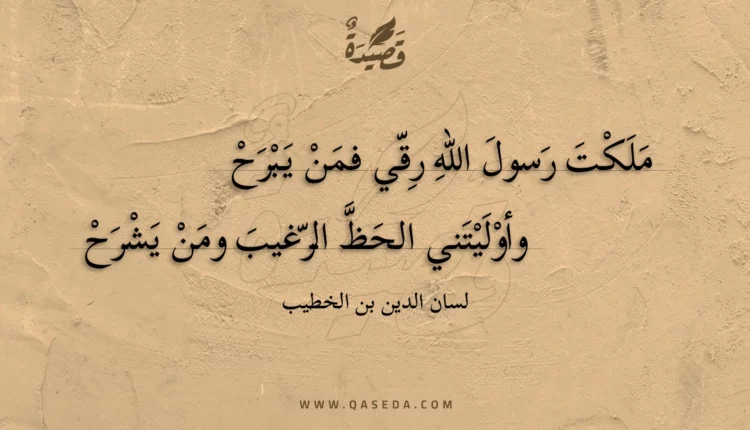 قَصِيدَةٌ
مَلَكْتَ رَسولَ اللهِ رِقّي فمَنْ يَبْرَحْ
وأوْلَيْتَني الحَظَّ الرّغيبَ ومَنْ يَشْرَحْ
لسان الدين بن الخطيب
WWW.QASEDA.COM